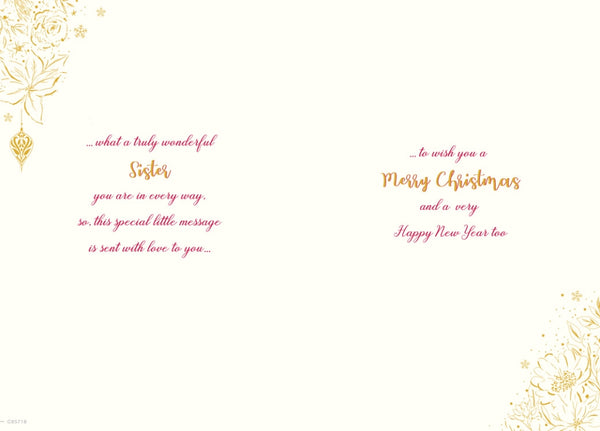 ...what a truly wonderful
Sister
you are in every way,
so, this special little message
is sent with love to you...
...to wish you a
Merry Christmas
and a very
Happy New Year too